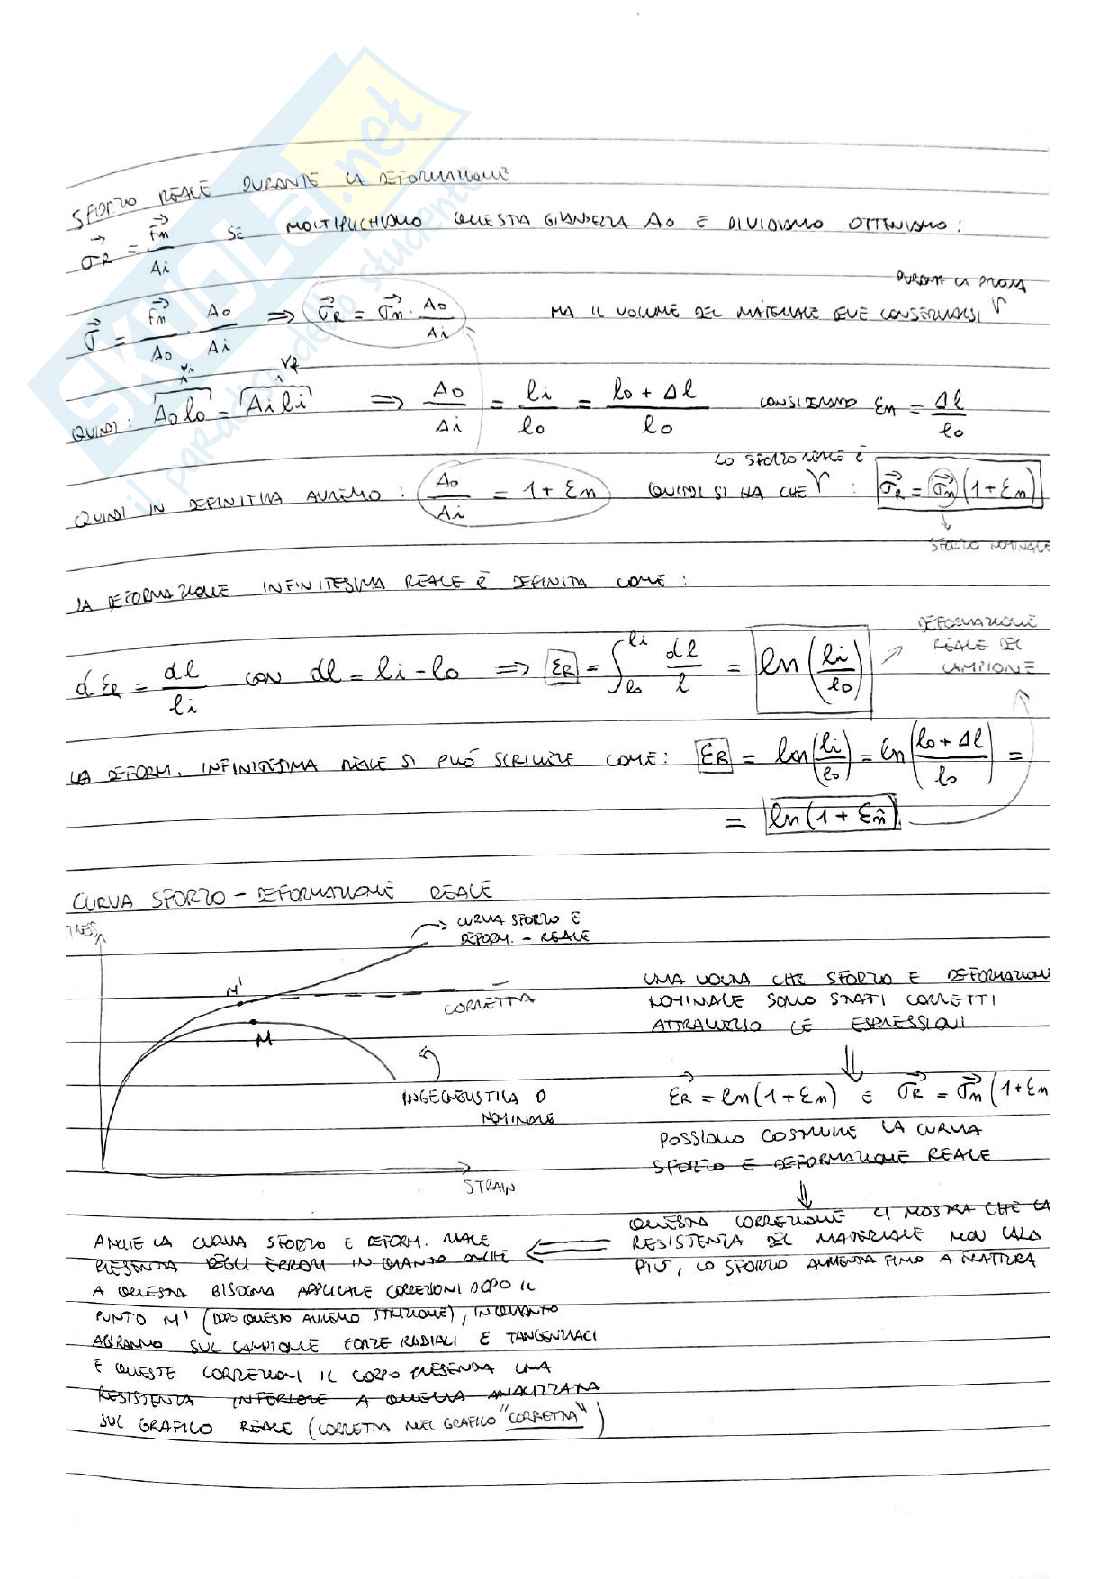 SKUOLA.net
il paradiso dello studente
SFORZO REALE DURANTE LA DEFORMAZIONE
σR = Fm / Ai SE MOLTIPLICHIAMO QUESTA GRANDEZZA A0 E DIVIDIAMO OTTENIAMO:
DURANTE LA PROVA
σ = Fm/A0 · A0/Ai ⇒ σR = σm · A0/Ai MA IL VOLUME DEL MATERIALE DEVE CONSERVARSI
QUINDI: A0 l0 = Ai li ⇒ A0/Ai = li/l0 = (l0 + Δl)/l0 CONSIDERANDO Em = Δl/l0
LO SFORZO REALE È
QUINDI IN DEFINITIVA AVREMO: A0/Ai = 1 + Em QUINDI SI HA CHE : σR = σm (1 + Em)
SFORZO NOMINALE
LA DEFORMAZIONE INFINITESIMA REALE È DEFINITA COME:
dER = dl/li CON dl = li - l0 ⇒ ER = ∫ l0 li dl/l = ln(li/l0)
DEFORMAZIONE
REALE DEL
CAMPIONE
LA DEFORM. INFINITESIMA REALE SI PUÓ SCRIVERE COME: ER = ln(li/l0) = ln((l0 + Δl)/l0) =
= ln(1 + Em)
CURVA SFORZO - DEFORMAZIONE REALE
CURVA SFORZO E
DEFORM. - REALE
M'
CORRETTA
M
INGEGNERISTICA O
NOMINALE
STRAIN
UNA VOLTA CHE SFORZO E DEFORMAZIONI
NOMINALE SONO STATI CORRETTI
ATTRAVERSO LE ESPRESSIONI
⇓
ER = ln(1 + Em) E σR = σm (1 + Em
POSSIAMO COSTRUIRE LA CURVA
SFORZO E DEFORMAZIONE REALE
⇓
QUESTA CORREZIONE CI MOSTRA CHE LA
RESISTENZA DEL MATERIALE NON CALA
PIÙ, LO SFORZO AUMENTA FINO A FRATTURA
ANCHE LA CURVA SFORZO E DEFORM. REALE
PRESENTA DEGLI ERRORI IN QUANTO ANCHE
A QUESTA BISOGNA APPLICARE CORREZIONI DOPO IL
PUNTO M' (DOPO QUESTO AVREMO STRIZIONE), IN QUANTO
AGIRANNO SUL CAMPIONE FORZE RADIALI E TANGENZIALI
E QUESTE CORREZIONI IL CORPO PRESENTA UNA
RESISTENZA INFERIORE A QUELLA ANALIZZATA
SUL GRAFICO REALE (CORRETTA NEL GRAFICO "CORRETTA")